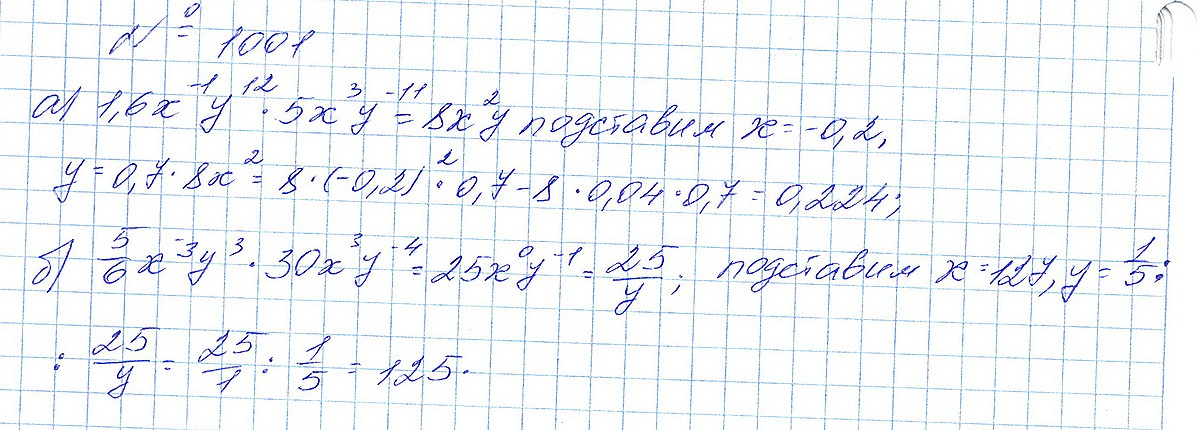 № 1001
а) 1,6x⁻¹y¹² · 5x³y⁻¹¹ = 8x²y подставим x = -0,2,
y = 0,7 · 8x² = 8 · (-0,2)² · 0,7 - 8 · 0,04 · 0,7 = 0,224;
б) 5/6 x⁻³y³ · 30x³y⁻⁴ = 25x⁰y⁻¹ = 25/y ; подставим x = 127, y = 1/5 :
: 25/y = 25/1 : 1/5 = 125.